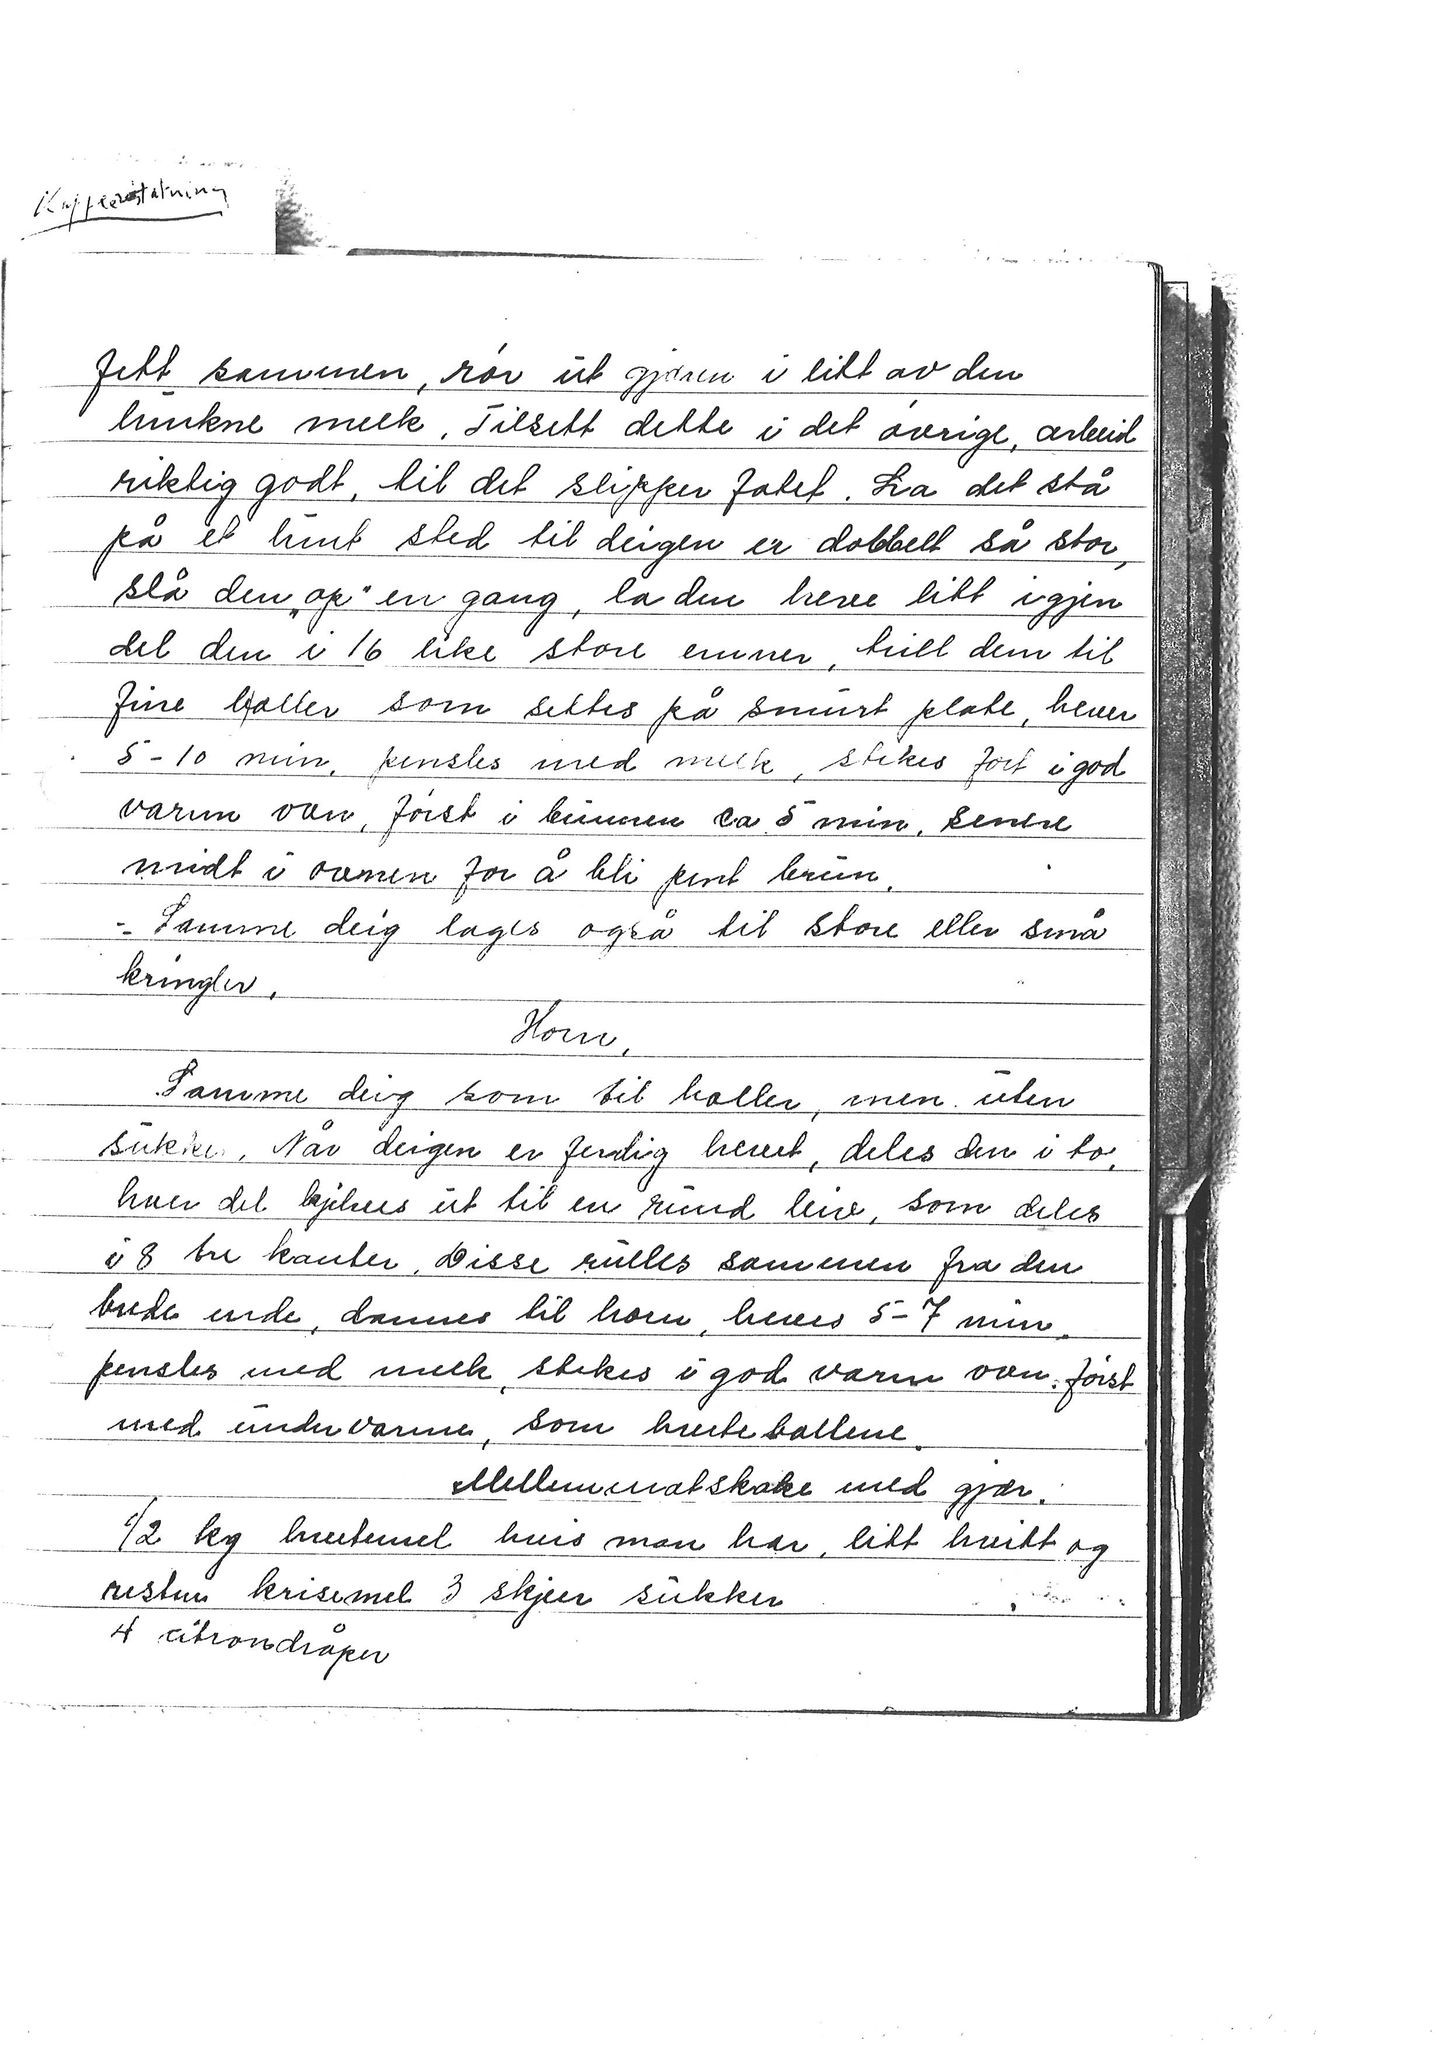 Kaffeerstatning
fett sammen, rör ut gjæren i litt av den
lunkne melk. Tilsett dette i det övrige, arbeid
riktig godt, til det slipper fatet. La det stå
på et lunt sted til deigen er dobbelt så stor,
slå den „op" en gang, la den heve litt igjen
del den i 16 like store emner, trill dem til
fine boller som settes på smurt plate, hever
5-10 min. pensles med melk, stekes fort i god
varm ovn, först i bunnen ca 5 min. senere
midt i ovnen for å bli pent brun.
-. Samme deig lages også til store eller små
kringler.
Horn.
Samme deig som til boller, men uten
sukker. Når deigen er ferdig hevet, deles den i to,
hver del kjevles ut til en rund leiv, som deles
i 8 tre kanter. Disse rulles sammen fra den
brede ende, dannes til horn, heves 5-7 min.
pensles med melk, stekes i god varm ovn. först
med undervarme, som hveteballene.
Mellommatskake med gjær.
1/2 kg hvetemel hvis man har, litt hvitt og
resten krisemel 3 skjeer sukker
4 citrondråper